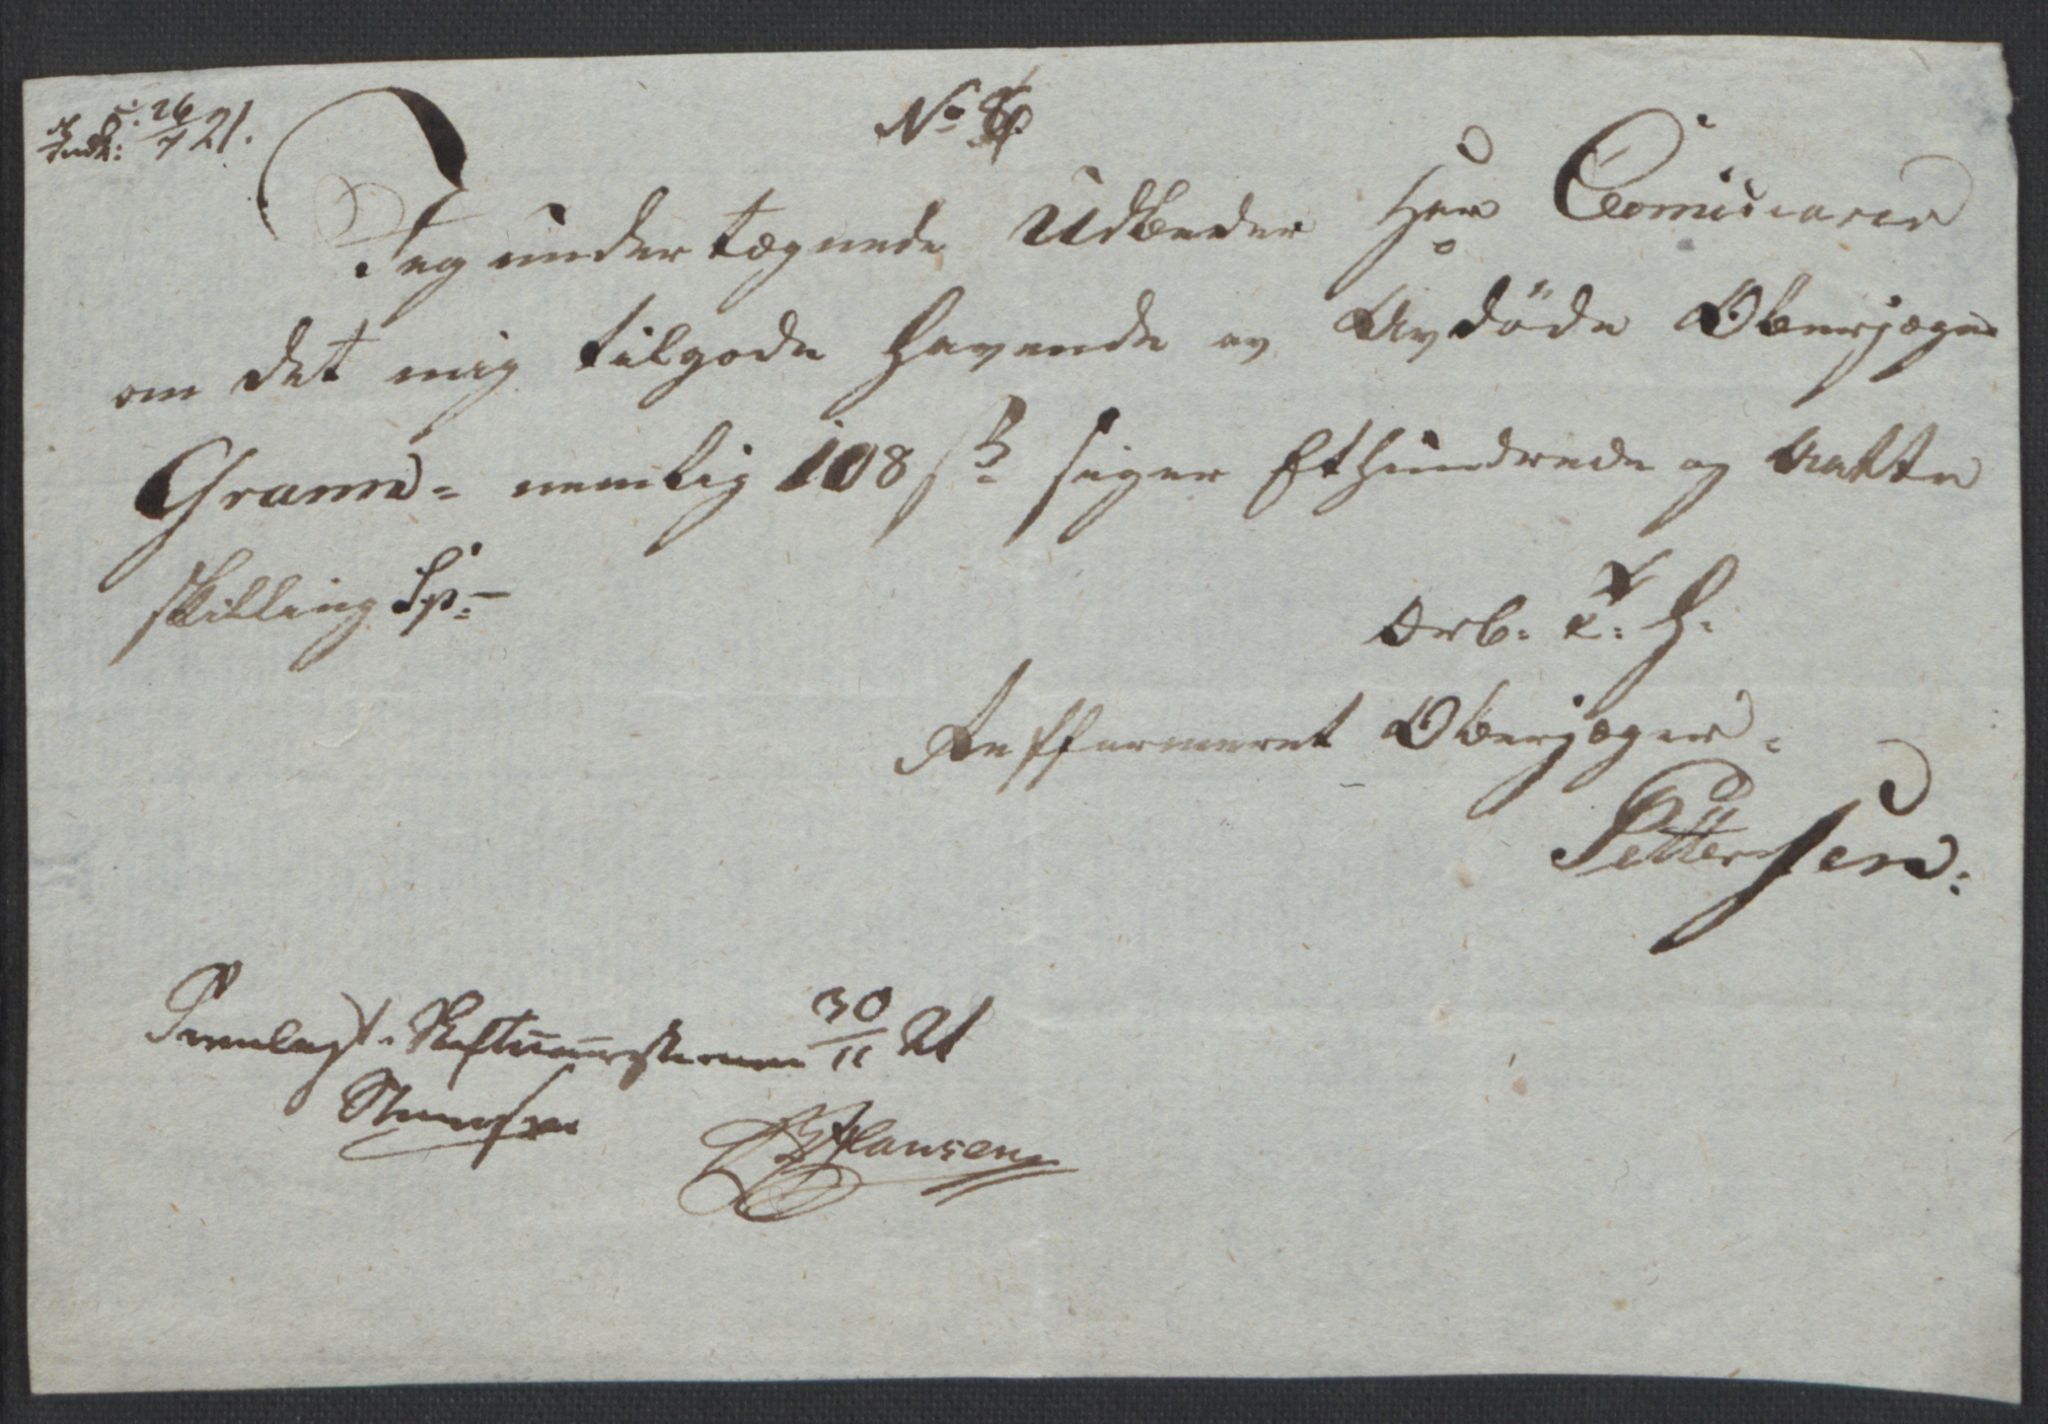 Indk: 26/7 21.
No 8
Jeg undertægnede Udbeder Her Comisiarer
om det mig tilgode havende av Avdöde Oberjæger
Gramd = nemlig 108 sk siger Ethundrede og Aatte
skilling Sp:
Erb: x: H:
Refformeret Oberjæger =
Pettersen:
Fremlagt 30/11 21
Hansen